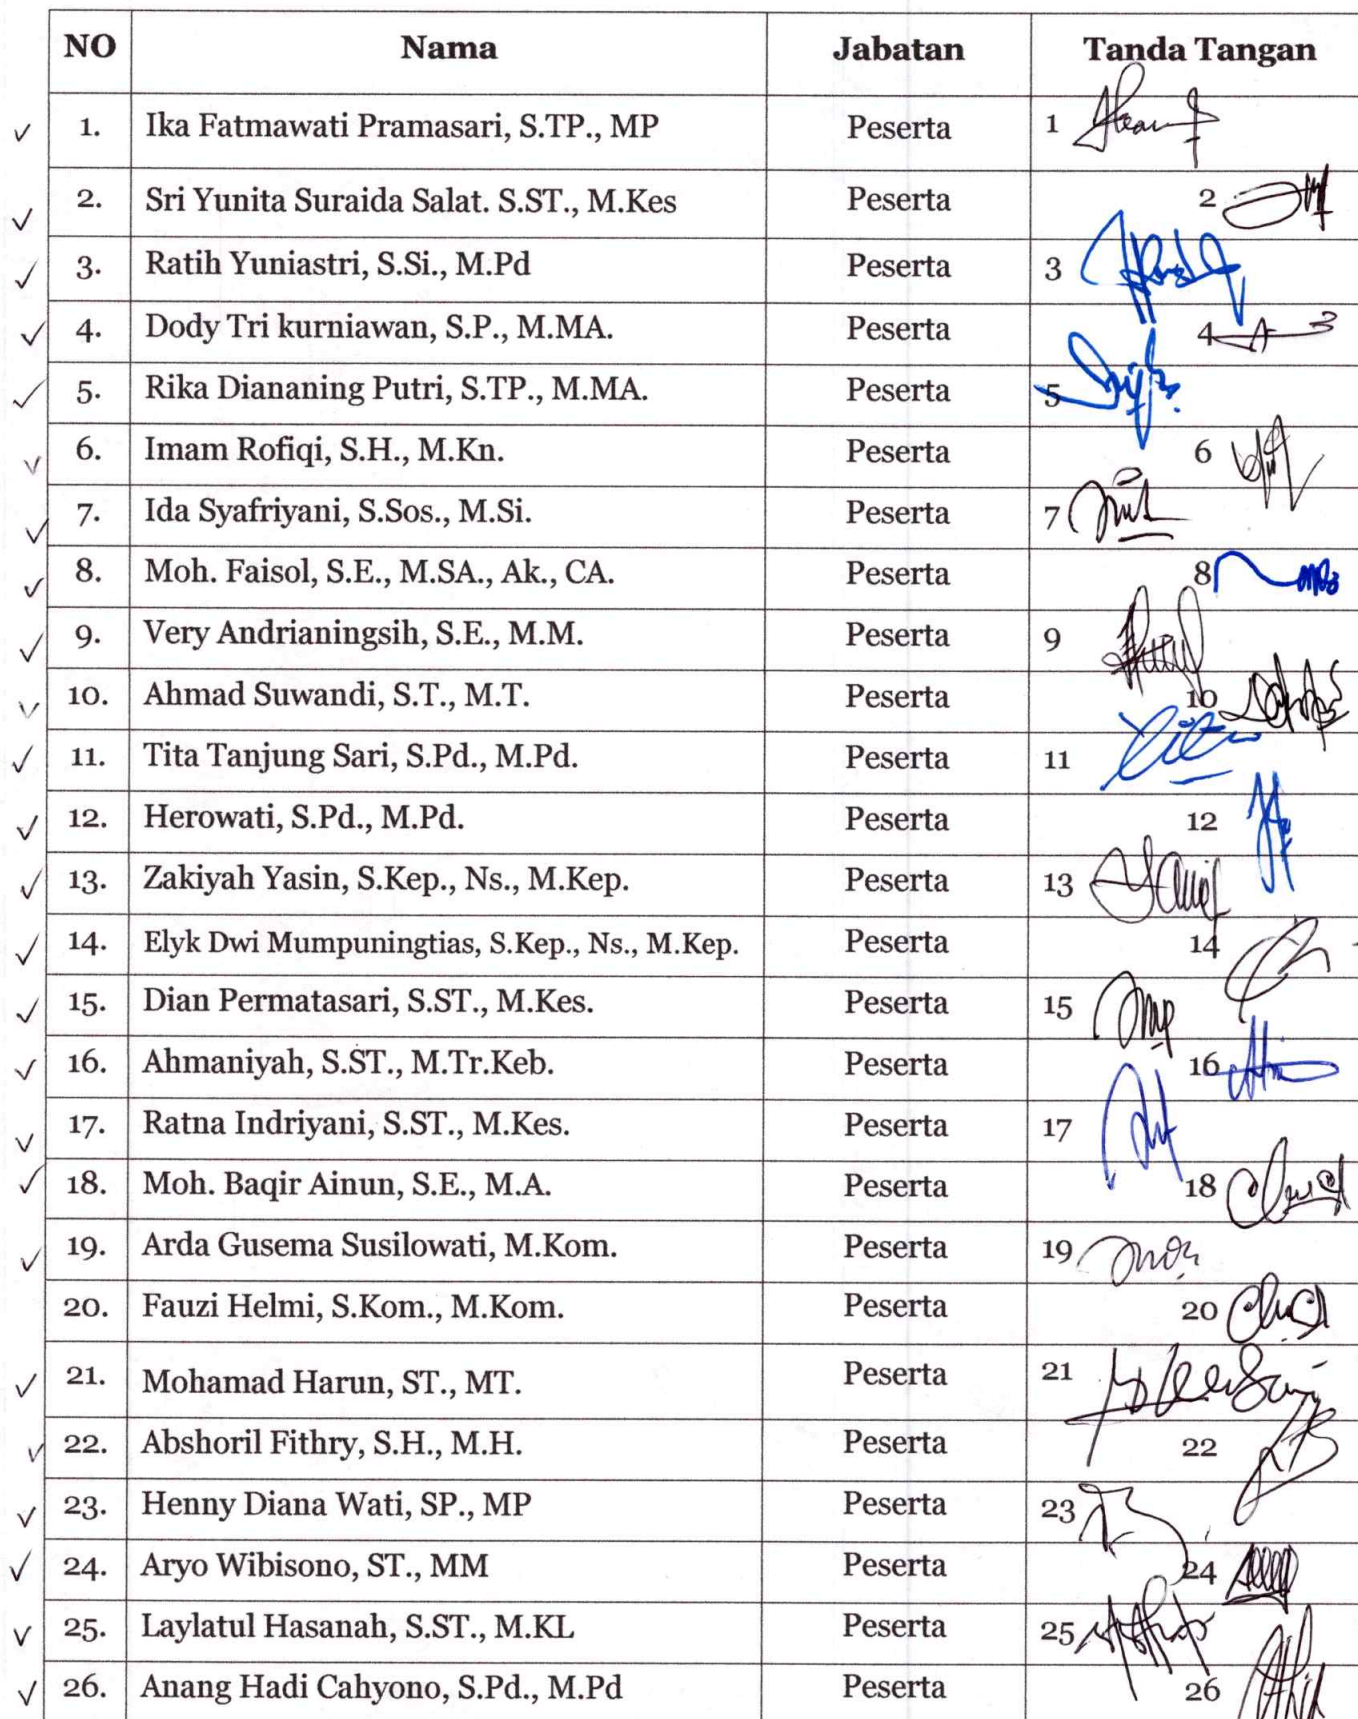 NO Nama Jabatan Tanda Tangan
1. Ika Fatmawati Pramasari, S.TP., MP Peserta 1
2. Sri Yunita Suraida Salat. S.ST., M.Kes Peserta 2
3. Ratih Yuniastri, S.Si., M.Pd Peserta 3
4. Dody Tri kurniawan, S.P., M.MA. Peserta 4
5. Rika Diananing Putri, S.TP., M.MA. Peserta 5
6. Imam Rofiqi, S.H., M.Kn. Peserta 6
7. Ida Syafriyani, S.Sos., M.Si. Peserta 7
8. Moh. Faisol, S.E., M.SA., Ak., CA. Peserta 8
9. Very Andrianingsih, S.E., M.M. Peserta 9
10. Ahmad Suwandi, S.T., M.T. Peserta 10
11. Tita Tanjung Sari, S.Pd., M.Pd. Peserta 11
12. Herowati, S.Pd., M.Pd. Peserta 12
13. Zakiyah Yasin, S.Kep., Ns., M.Kep. Peserta 13
14. Elyk Dwi Mumpuningtias, S.Kep., Ns., M.Kep. Peserta 14
15. Dian Permatasari, S.ST., M.Kes. Peserta 15
16. Ahmaniyah, S.ST., M.Tr.Keb. Peserta 16
17. Ratna Indriyani, S.ST., M.Kes. Peserta 17
18. Moh. Baqir Ainun, S.E., M.A. Peserta 18
19. Arda Gusema Susilowati, M.Kom. Peserta 19
20. Fauzi Helmi, S.Kom., M.Kom. Peserta 20
21. Mohamad Harun, ST., MT. Peserta 21
22. Abshoril Fithry, S.H., M.H. Peserta 22
23. Henny Diana Wati, SP., MP Peserta 23
24. Aryo Wibisono, ST., MM Peserta 24
25. Laylatul Hasanah, S.ST., M.KL Peserta 25
26. Anang Hadi Cahyono, S.Pd., M.Pd Peserta 26